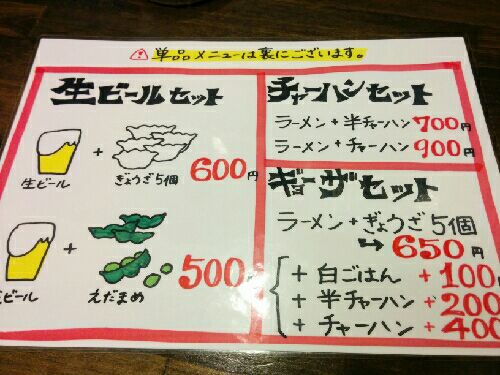 単品メニューは裏にございます。
生ビールセット
生ビール + ぎょうざ5個 600円
ビール + えだまめ 500
チャーハンセット
ラーメン+半チャーハン 700円
ラーメン+チャーハン 900円
ギョーザセット
ラーメン+ぎょうざ5個
↳ 650円
+ 白ごはん +100円
+ 半チャーハン +200
+ チャーハン +400